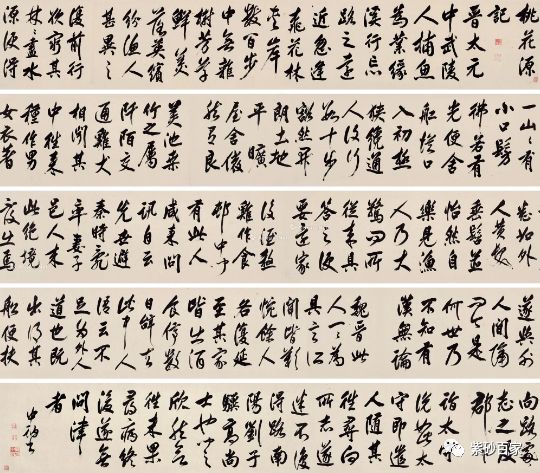 桃花源
記
晋太元
中武陵
人捕魚
為業緣
溪行忘
路之遠
近忽逢
桃花林
夾岸
數百步
中無雜
樹芳草
鮮美
落英繽
紛漁人
甚異之
復前行
欲窮其
林林盡水
源便得
一山山有
小口髣
彿若有
光便舍
船從口
入初極
狹纔通
人復行
數十步
豁然開
朗土地
平曠
屋舍儼
然有良
美池桑
竹之屬
阡陌交
通雞犬
相聞其
中往來
種作男
女衣著
悉如外
人黃髮
垂髫並
怡然自
樂見漁
人乃大
驚問所
從來具
答之便
要還家
設酒殺
雞作食
邨中
有此人
咸來問
訊自云
先世避
秦時亂
率妻子
邑人來
此絕境
復出焉
遂與外
人間隔
問今是
何世乃
不知有
漢無論
魏晉此
人一為
具言
聞皆歎
惋餘人
各復延
至其家
皆出酒
食停數
日辭去
此中人
語云不
足為外人
道也既
出得其
船便扶
向路處
志之及
郡
詣太
說如此
守即遣
人隨其
往尋向
所志遂
迷不復
得路南
陽劉子
驥高尚
士也聞之
欣然規
往未果
尋病終
後遂無
問津
者
紫砂百家